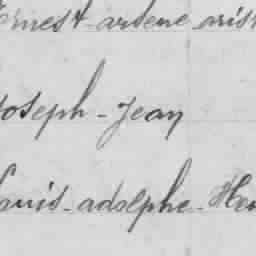 Ernest arsene aris
Joseph - Jean
Louis - adolphe - Hen